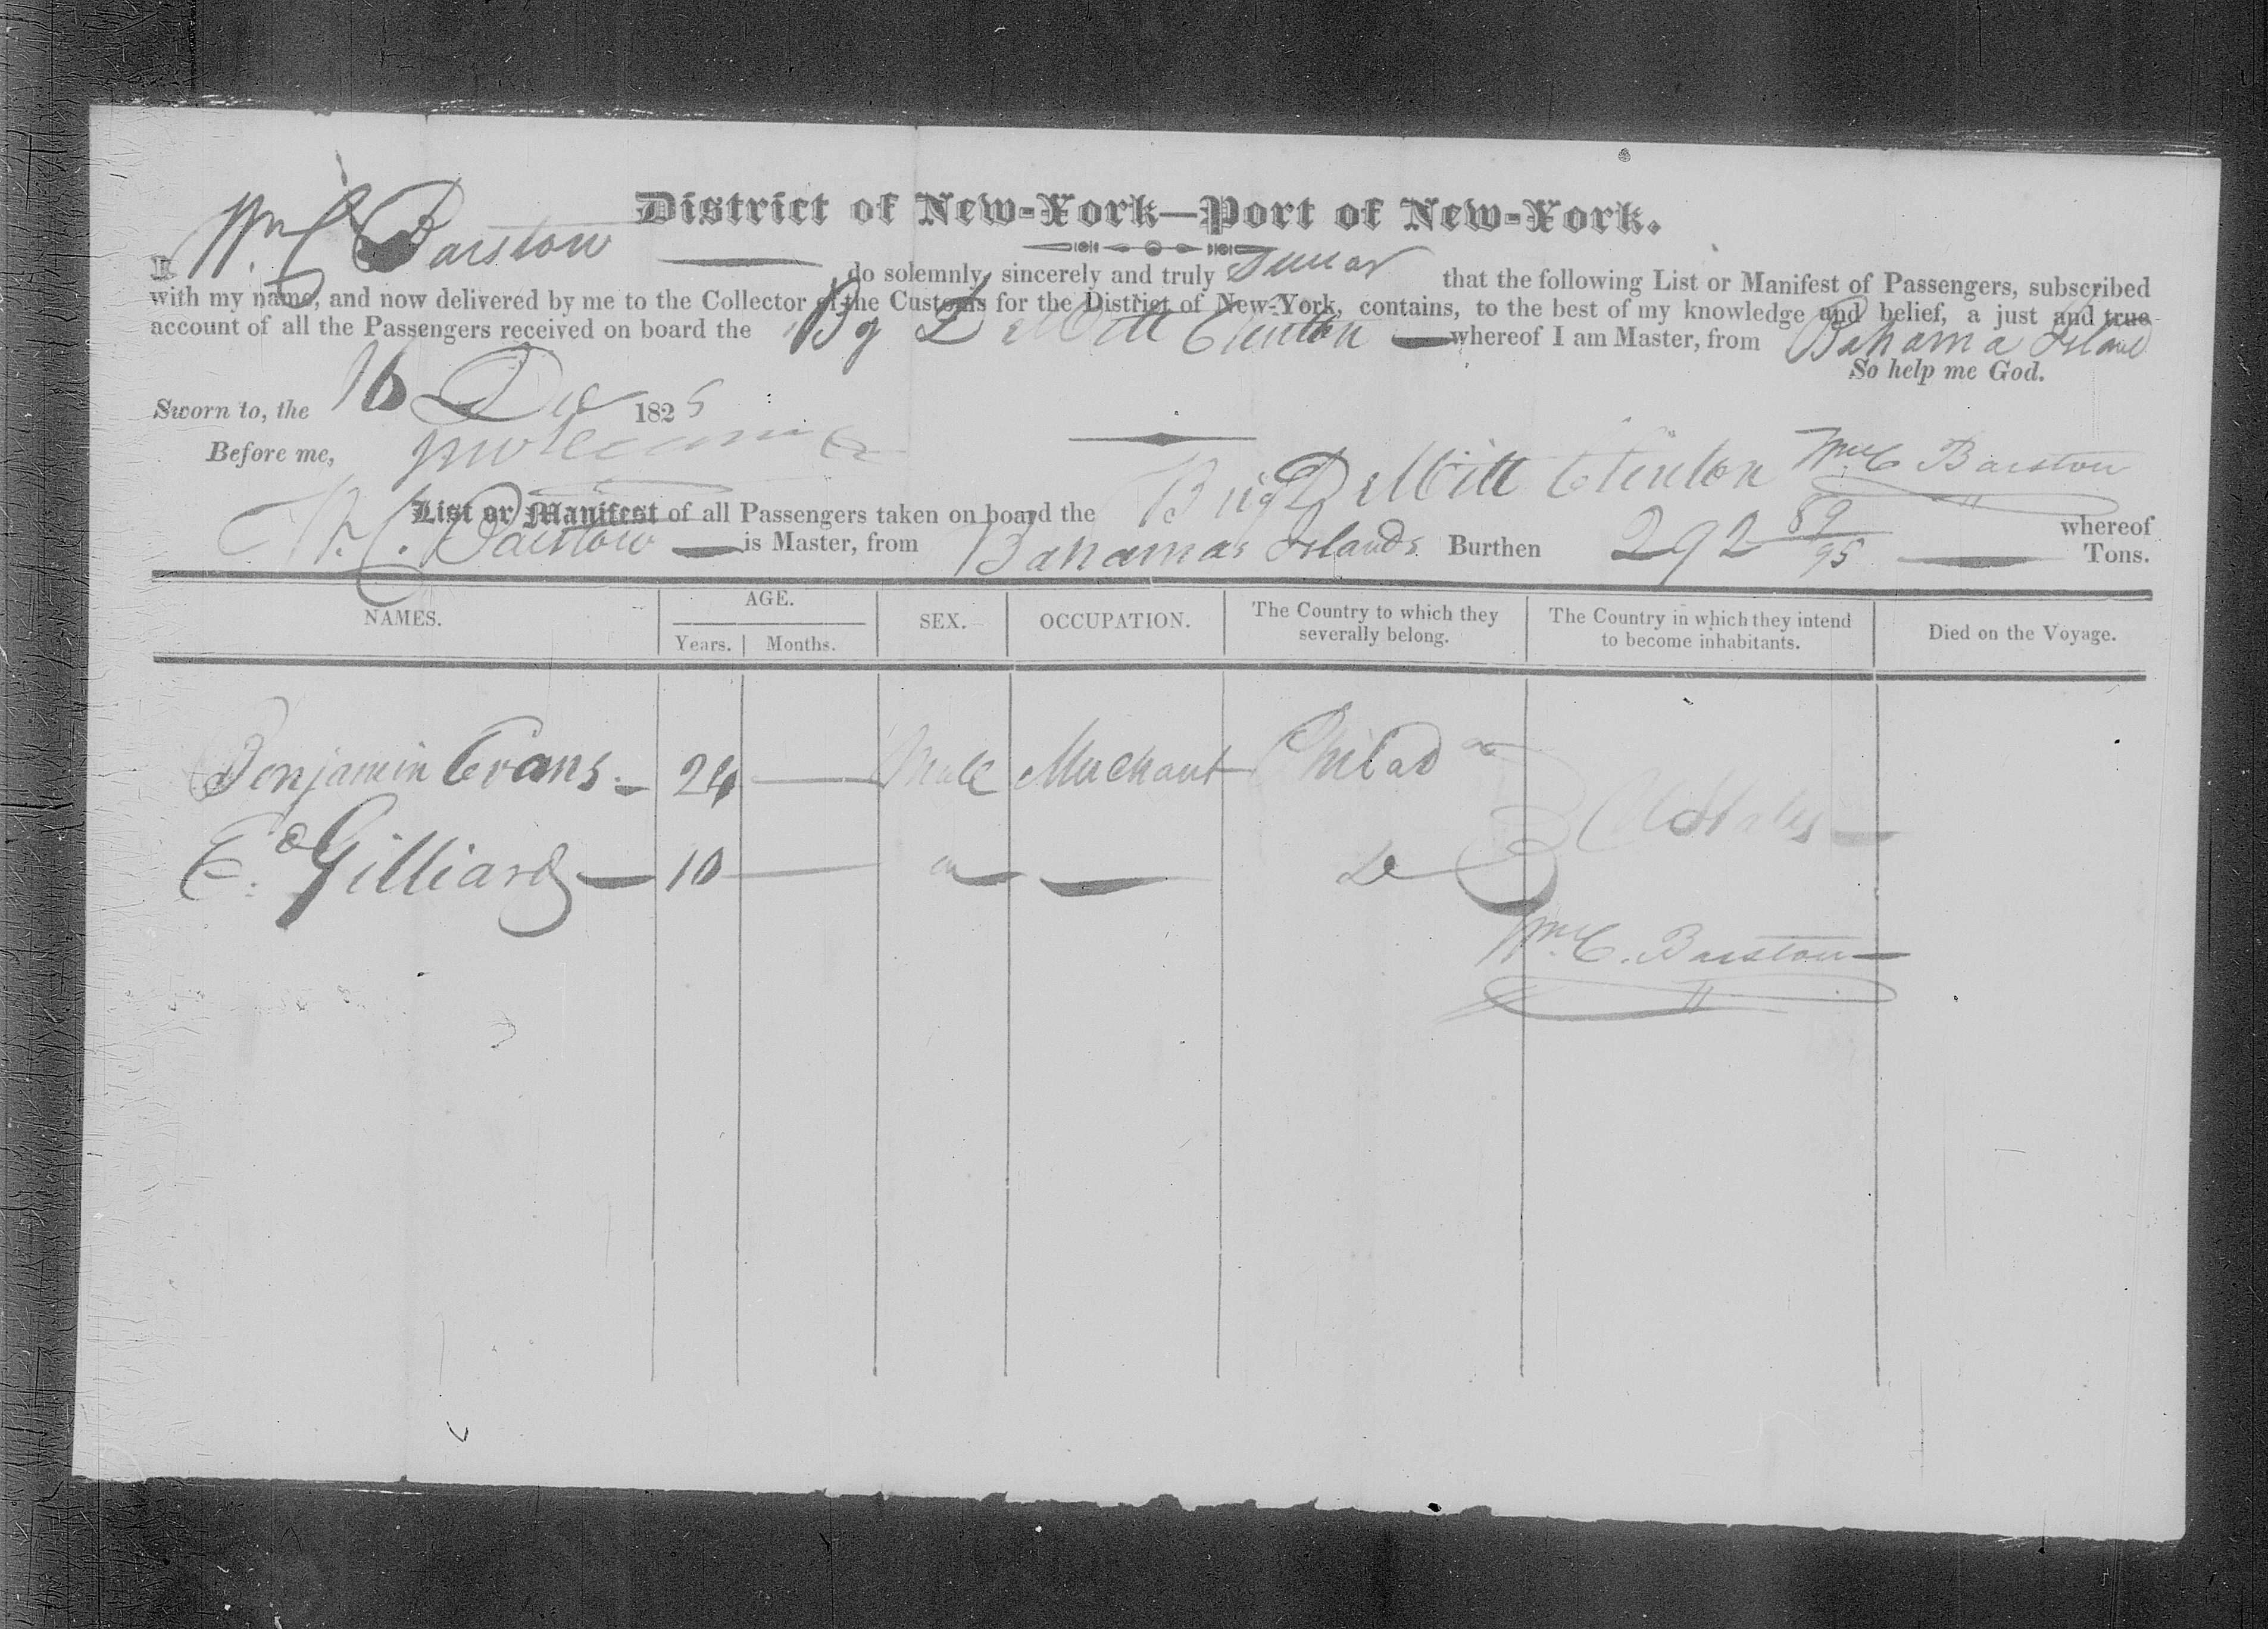 District of New-York—Port of New-York.
I Wm C Barstow do solemnly, sincerely and truly swear that the following List or Manifest of Passengers, subscribed
with my name, and now delivered by me to the Collector of the Customs for the District of New-York, contains, to the best of my knowledge and belief, a just and true
account of all the Passengers received on board the Bg De Witt Clinton whereof I am Master, from Bahama Island
So help me God.
Sworn to, the 16 Dec 1825
Before me,
Wm C Barstow
List or Manifest of all Passengers taken on board the Brig De Witt Clinton whereof
W. C. Barstow is Master, from Bahamas Islands Burthen 292 89/95 Tons.
NAMES. AGE. SEX. OCCUPATION. The Country to which they severally belong. The Country in which they intend to become inhabitants. Died on the Voyage.
Years. Months.
Benjamin Evans 24 — Male Merchant Philada
U States
Ed Gilliard — 10 — — Do
Wm C. Barstow